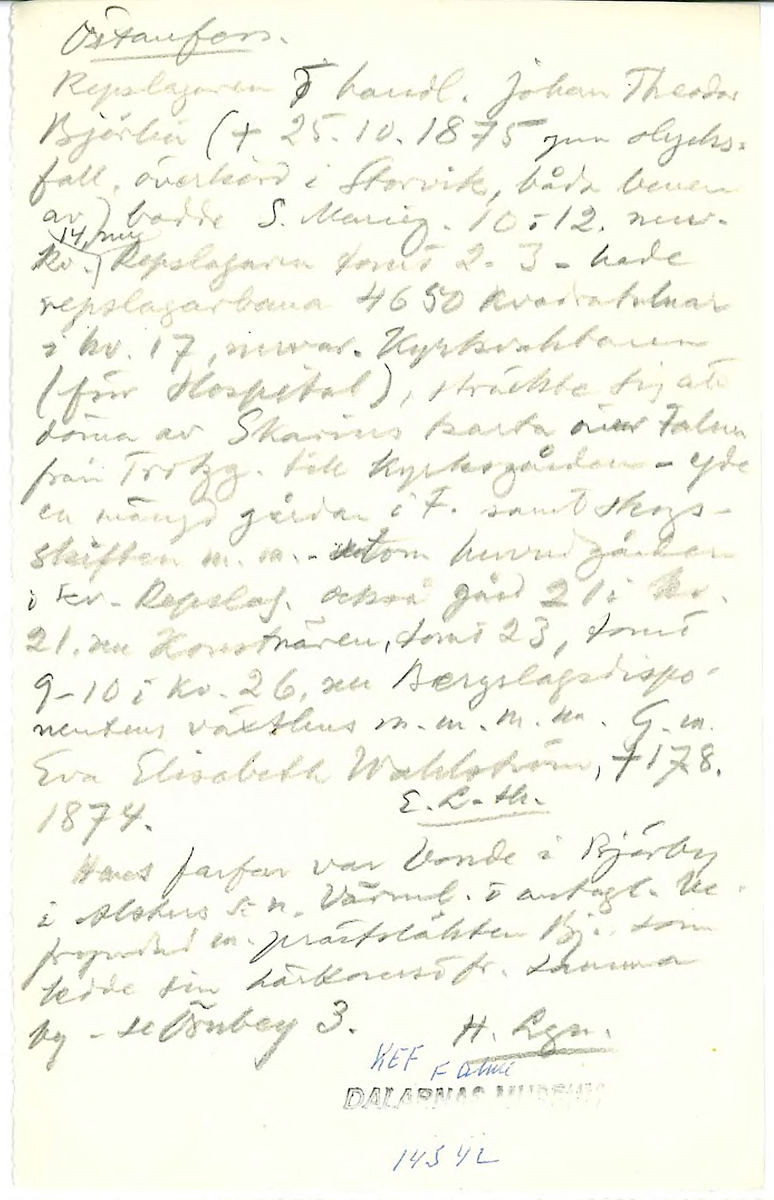 Östanfors.
Repslagaren o handl. Johan Theodor
Björlin (+ 25.10.1875 gm olycks-
fall, överkörd i Storvik, båda benen
av) bodde S. Marieg. 10 o 12. nuv.
14, nuv
kv. Repslagaren tomt 2-3 - hade
repslagarbana 4650 kvadratalnar
i kv. 17, nuvar. Kyrkvaktaren
(förr Hospital), sträckte sig att
döma av Skarins karta över Falun
från Trotzg. till Kyrkogården - ägde
en mängd gårdar i F. samt skogs-
skiften m.m. - utom huvudgården
i kv. Repslag. också gård 21 i kv.
21. nu Konstnären, tomt 23, tomt
9-10 i kv. 26, nu Bergslagsdispo-
nentens växthus m.m. m.m. G.m.
Eva Elisabeth Wahlström, + 17 8.
1874.
E. L-th.
Hans farfar var bonde i Björby
i Alsters s:n. Värml. o antagl. be-
fryndad m. prästsläkten Bj. som
ledde sin härkomst fr. samma
by - se Örnberg 3.
H. Lgn.
KEF Falun
DALARNAS MUSEUM
14542